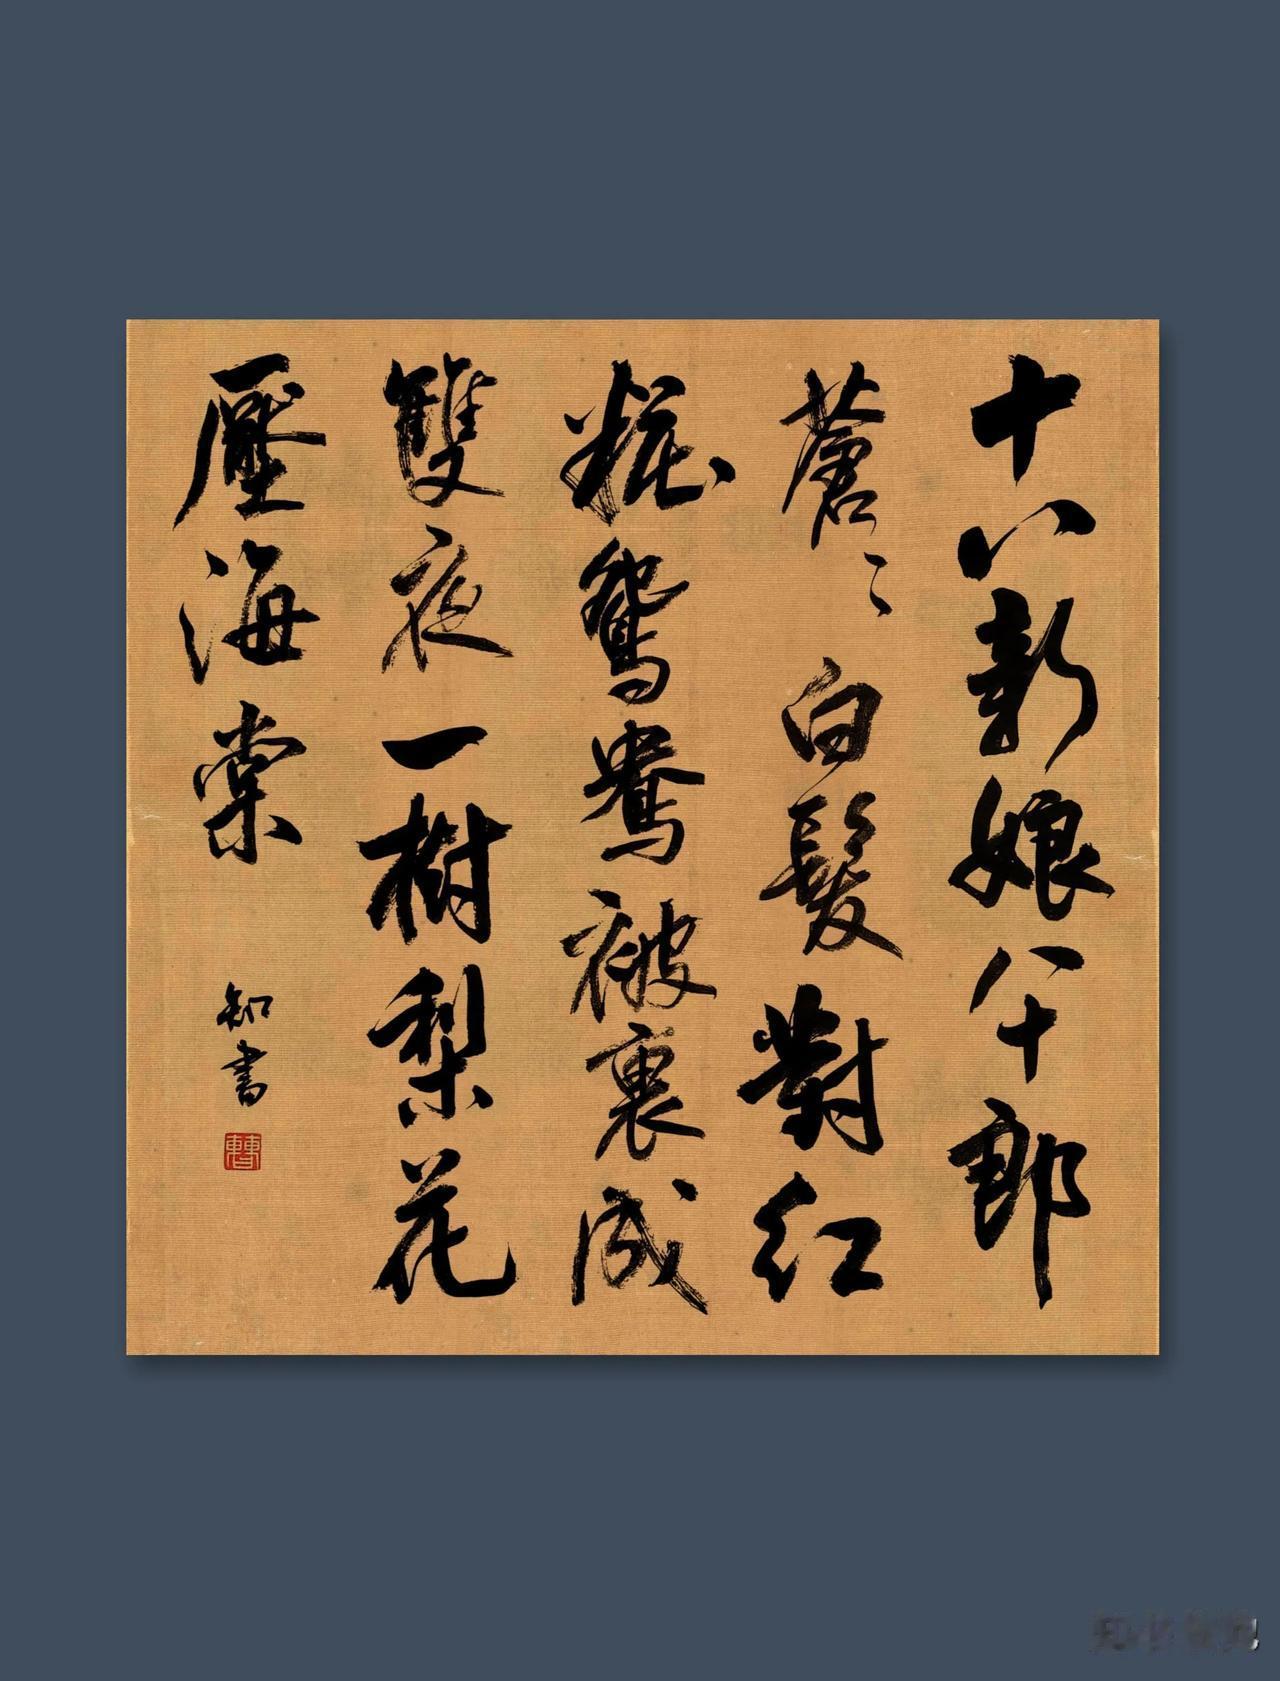 十八新娘八十郎
蒼〻白髮對紅
粧鴛鴦被裏成
雙夜一樹梨花
壓海棠
知書